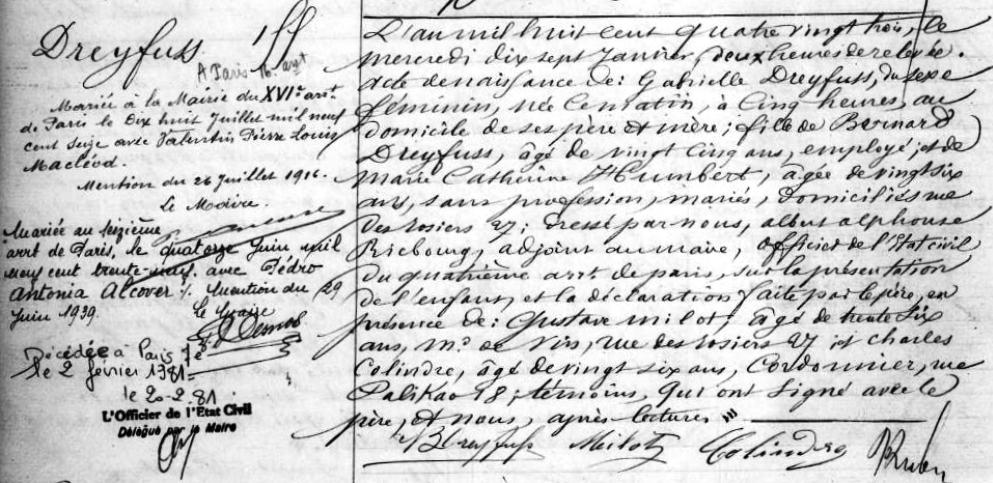 Dreyfuss
A Paris 16. arrt
Mariée à la Mairie du XVIe arrt.
de Paris le Dix huit Juillet mil neuf
cent Seize avec Valentin Pierre Louis
Macléod.
Mention du 26 Juillet 1916.
Le Maire.
Mariée au seizième
arrt de Paris, le quatorze Juin mil
neuf cent trente-neuf. avec Pédro
Antonia Alcover ./. Mention du 29
Juin 1939. Le Maire
Décédée à Paris 7e
le 2 février 1981
le 20-2.81
L'Officier de l'Etat Civil
Délégué par le Maire
L'an mil huit cent quatre vingt trois, le
mercredi dix sept Janvier, deux heures de relevée.
acte de naissance de: Gabrielle Dreyfuss, du sexe
féminin, née ce matin, à Cinq heures, au
domicile de ses père et mère; fille de Bernard
Dreyfuss, âgé de vingt Cinq ans, employé, et de
Marie Catherine Humbert, âgée de vingt six
ans, sans profession, mariés, domiciliés rue
des rosiers 27; dressé par nous, alphonse
adjoint au maire, officier de l'Etat civil
du quatrième arrt de paris, sur la présentation
de l'enfant, et la déclaration faite par le père, en
présence de: Gustave milot, âgé de trente six
ans, md de vins, rue des rosiers 27 et charles
Colindre, âgé de vingt six ans, Cordonnier, rue
Palikao 18; témoins, qui ont signé avec le
père, et nous, après lecture.
BDreyfuss Milot Colindre